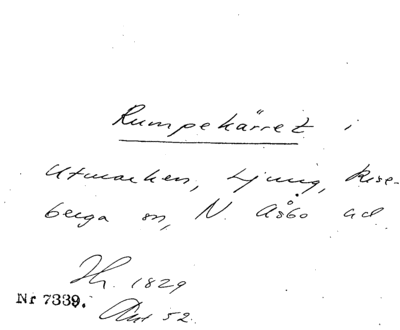 Rumpekärret i
Utmarken, Ljung, Rise-
berga sn, N. Åsbo hd
Hr. 1829
Nr 7339. Akt 52.